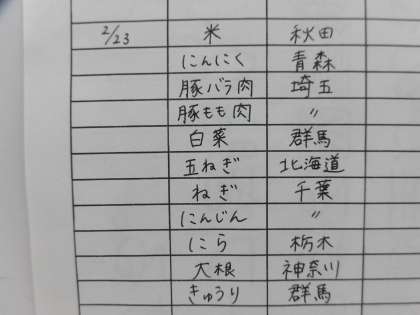 2/23 米 秋田
にんにく 青森
豚バラ肉 埼玉
豚もも肉 〃
白菜 群馬
五ねぎ 北海道
ねぎ 千葉
にんじん 〃
にら 栃木
大根 神奈川
きゅうり 群馬